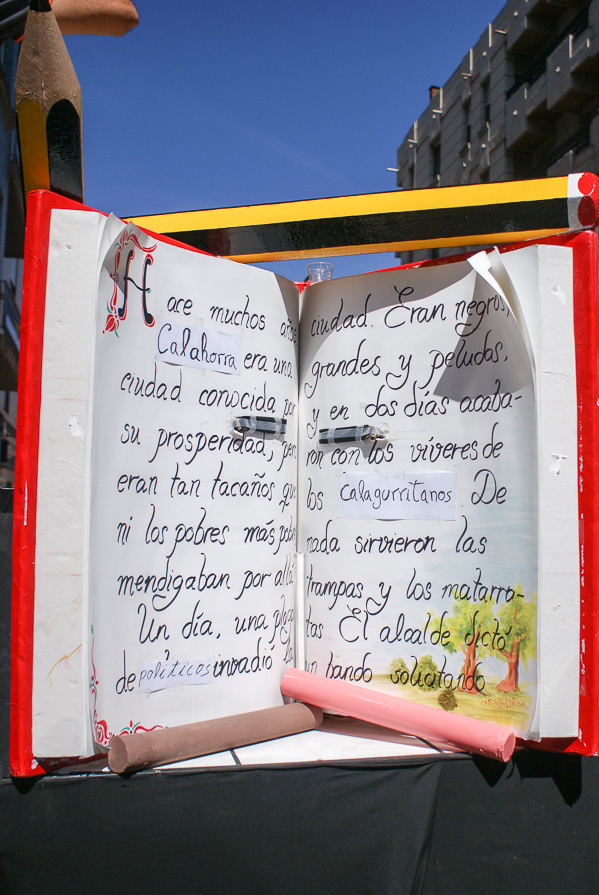 Hace muchos años
Calahorra era una
ciudad conocida por
su prosperidad, pero
eran tan tacaños que
ni los pobres más pobres
mendigaban por allá
Un día, una plaga
de políticos invadió la
ciudad. Eran negros,
grandes y peludas,
y en dos días acaba-
ron con los víveres de
los Calagurritanos. De
nada sirvieron las
trampas y los matarra-
tas. El alcalde dictó
un bando solicitando